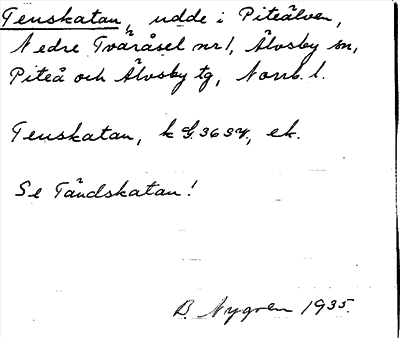 Tenskatan, udde i Piteälven,
Nedre Tväråsel nr 1, Älvsby sn,
Piteå och Älvsby tg, Norrb. l.
Tenskatan, k 36 SV, ek.
Se Tändskatan!
B. Nygren 1935.